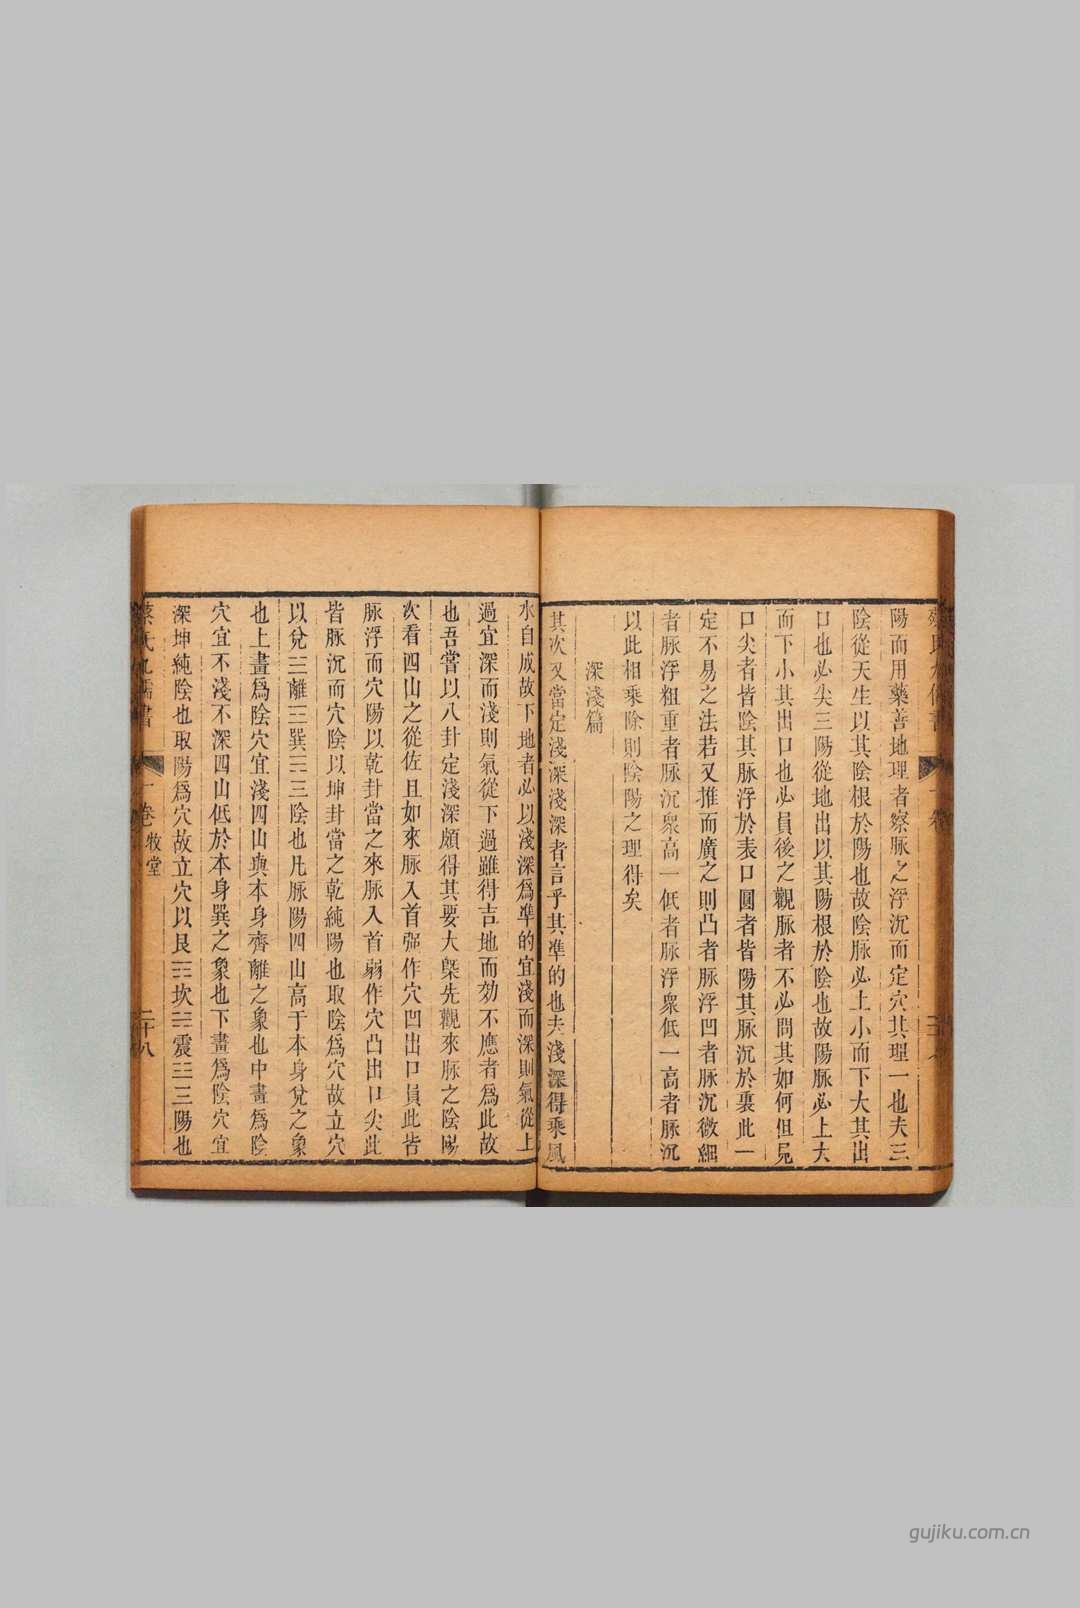 陽而用藥善地理者察脉之浮沉而定穴其理一也夫三
陰從天生以其陰根於陽也故陰脉必上小而下大其出
口也必尖三陽從地出以其陽根於陰也故陽脉必上大
而下小其出口也必員後之觀脉者不必問其如何但見
口尖者皆陰其脉浮於表口圓者皆陽其脉沉於裏此一
定不易之法若又推而廣之則凸者脉浮凹者脉沉微細
者脉浮粗重者脉沉衆高一低者脉浮衆低一高者脉沉
以此相乘除則陰陽之理得矣
深淺篇
其次又當定淺深淺深者言乎其準的也夫淺深得乘風
水自成故下地者必以淺深爲準的宜淺而深則氣從上
過宜深而淺則氣從下過雖得吉地而効不應者爲此故
也吾嘗以八卦定淺深頗得其要大槩先觀來脉之陰陽
次看四山之從佐且如來脉入首強作穴凹出口員此皆
脉浮而穴陽以乾卦當之來脉入首弱作穴凸出口尖此
皆脉沉而穴陰以坤卦當之乾純陽也取陰爲穴故立穴
以兌☱離☲巽☴三陰也凡脉陽四山高于本身兌之象
也上畫爲陰穴宜淺四山與本身齊離之象也中畫爲陰
穴宜不淺不深四山低於本身巽之象也下畫爲陰穴宜
深坤純陰也取陽爲穴故立穴以艮☶坎☵震☳三陽也
蔡氏九儒書
一卷
牧堂
二十八
gujiku.com.cn